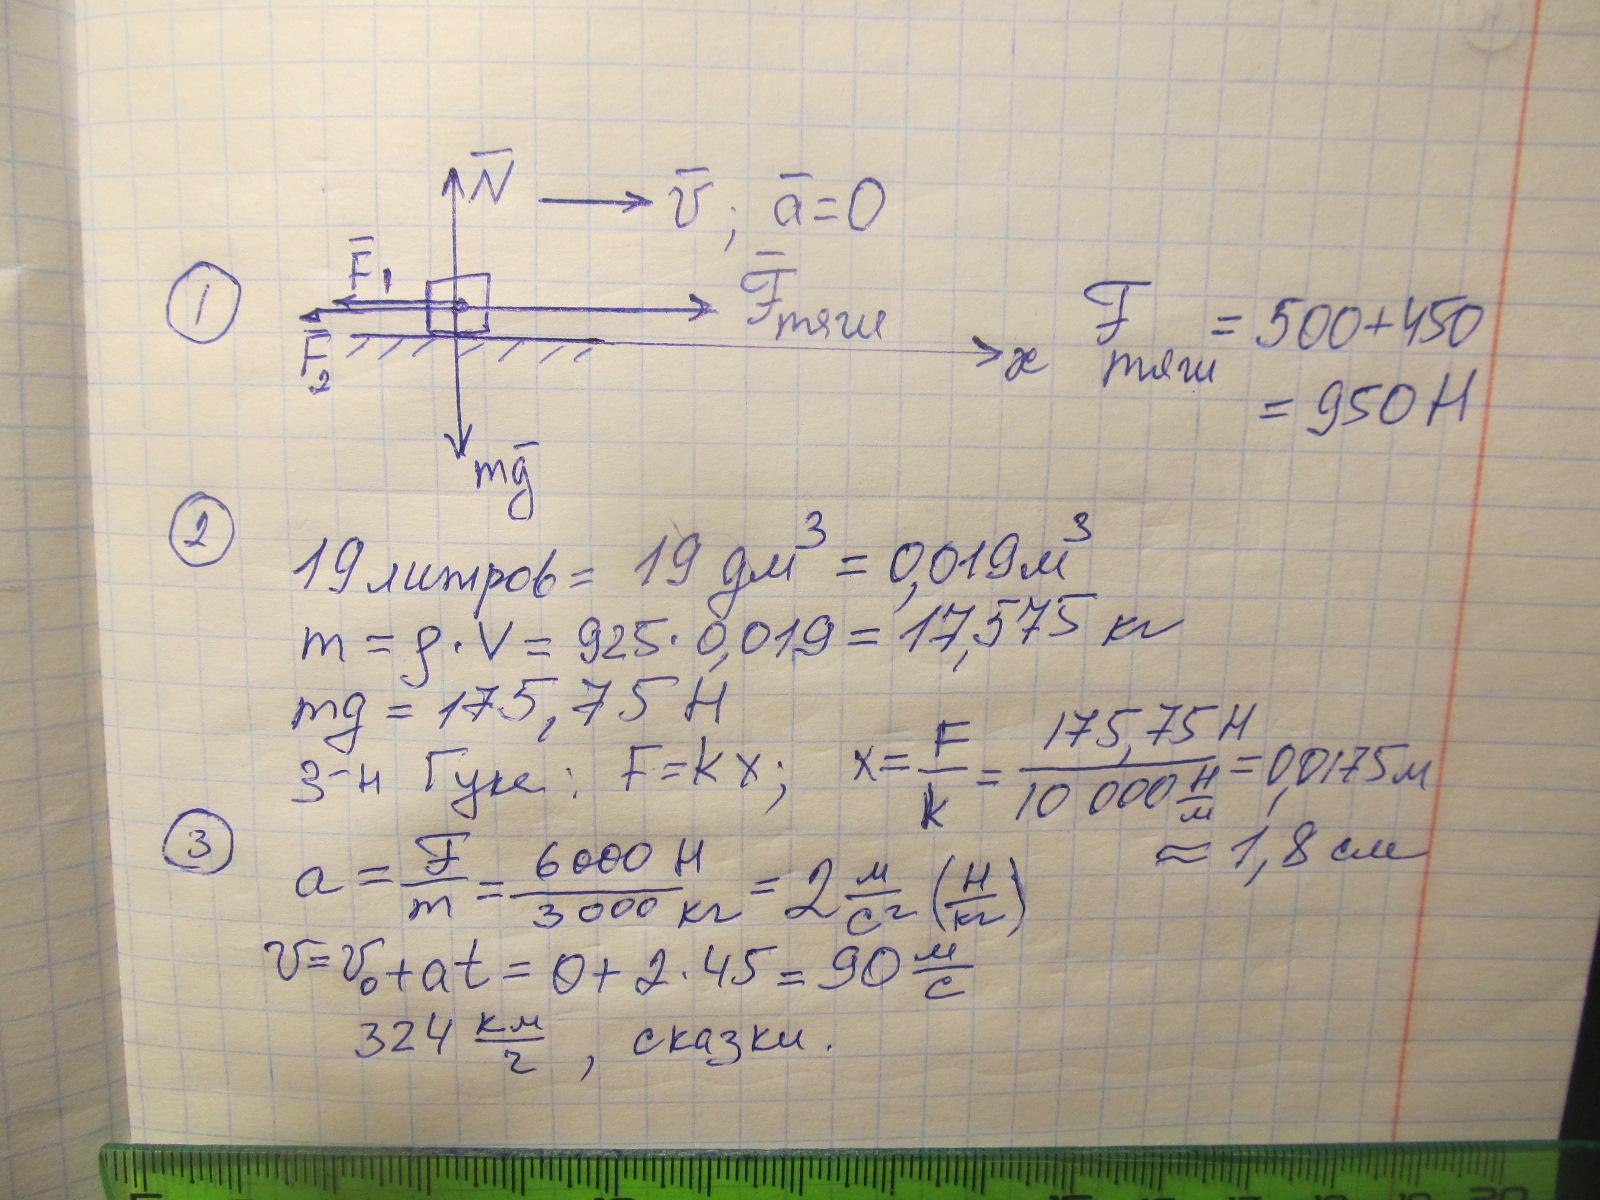 N̄ → v̄ ; ā = 0
①
F̄₁
F̄₂
F̄тяги
x
mḡ
Fтяги = 500+450
= 950 Н
②
19 литров = 19 дм³ = 0,019 м³
m = ρ · V = 925 · 0,019 = 17,575 кг
mg = 175,75 Н
З-н Гука : F = kx ; x = F/k = 175,75 Н / 10 000 Н/м = 0,0175 м
≈ 1,8 см
③
a = F/m = 6000 Н / 3000 кг = 2 м/с² (Н/кг)
v = v₀ + at = 0 + 2 · 45 = 90 м/с
324 км/ч , сказки .